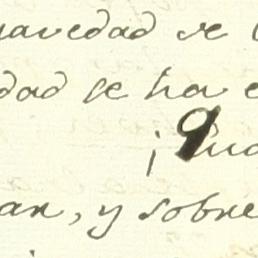 avedad se
dad se ha e
¡9
an, y sobre